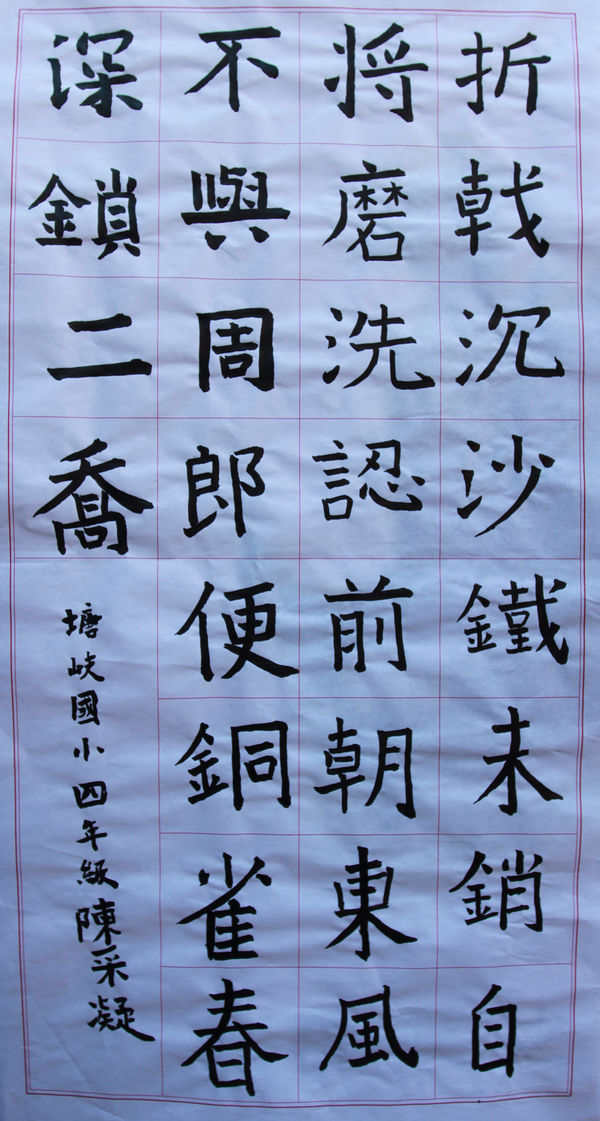 折戟沉沙鐵未銷自
將磨洗認前朝東風
不與周郎便銅雀春
深鎖二喬
塘岐國小四年級陳采凝